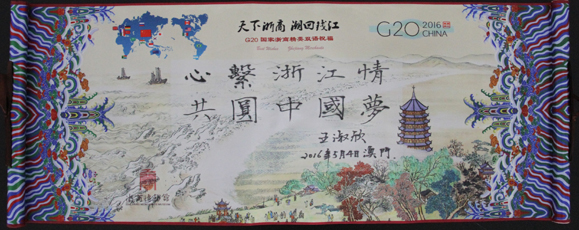 天下浙商 潮回钱江
G20 国家浙商精英宣语祝福
G20 2016
CHINA
心繫浙江情
共圓中國夢
王淑欣
2016年5月4日 澳門